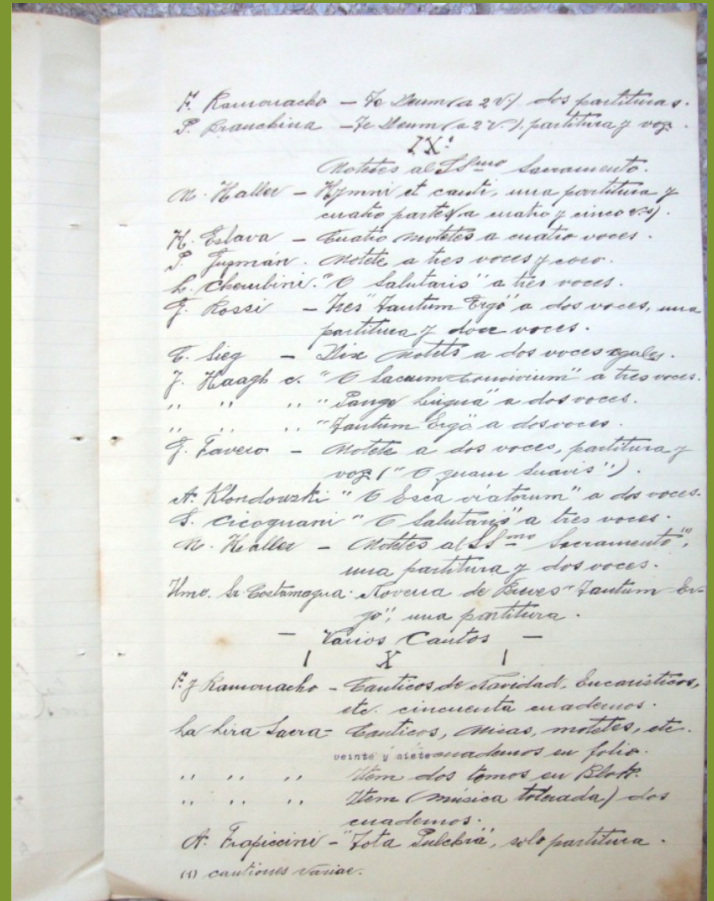 F. Ramonacho – Te Deum (a 2 V.) dos partituras.
P. Branchina – Te Deum (a 2 V.), partitura y voz.
IX.º
Motetes al SSmo Sacramento.
M. Haller – Hymni et canti, una partitura y
cuatro partes (a cuatro y cinco v.s).
H. Eslava – Cuatro motetes a cuatro voces.
P. Guzmán. Motete a tres voces y coro.
L. Cherubini. "O Salutaris" a tres voces.
G. Rossi – Tres "Tantum Ergo" a dos voces, una
partitura y doce voces.
E. Sieg – Dix Motets a dos voces egales.
J. Haagh c. "O Sacrum Convivium" a tres voces.
" " " "Pange Lingua" a dos voces.
" " " "Tantum Ergo" a dos voces.
G. Favero – Motete a dos voces, partitura y
voz ("O quam Suavis").
A. Klondowzki "O Esca viatorum" a dos voces.
S. Cicognani "O Salutaris" a tres voces.
M. Haller – Motetes al SSmo Sacramento (1),
una partitura y dos voces.
Ilmo. Sr. Costamagna. Novena de Buves "Tantum Er-
go", una partitura.
– Varios Cantos –
X
F. y Ramonacho – Canticos de Navidad, Eucarísticos,
etc. cincuenta cuadernos.
La Lira Sacra – Canticos, Misas, motetes, etc.
veinte y siete cuadernos en folio.
" " " Item dos tomos en Blok.
" " " Item (música tolerada) dos
cuadernos.
A. Frapiccini – "Tota Pulchra", solo partitura.
(1) cantiones variae.